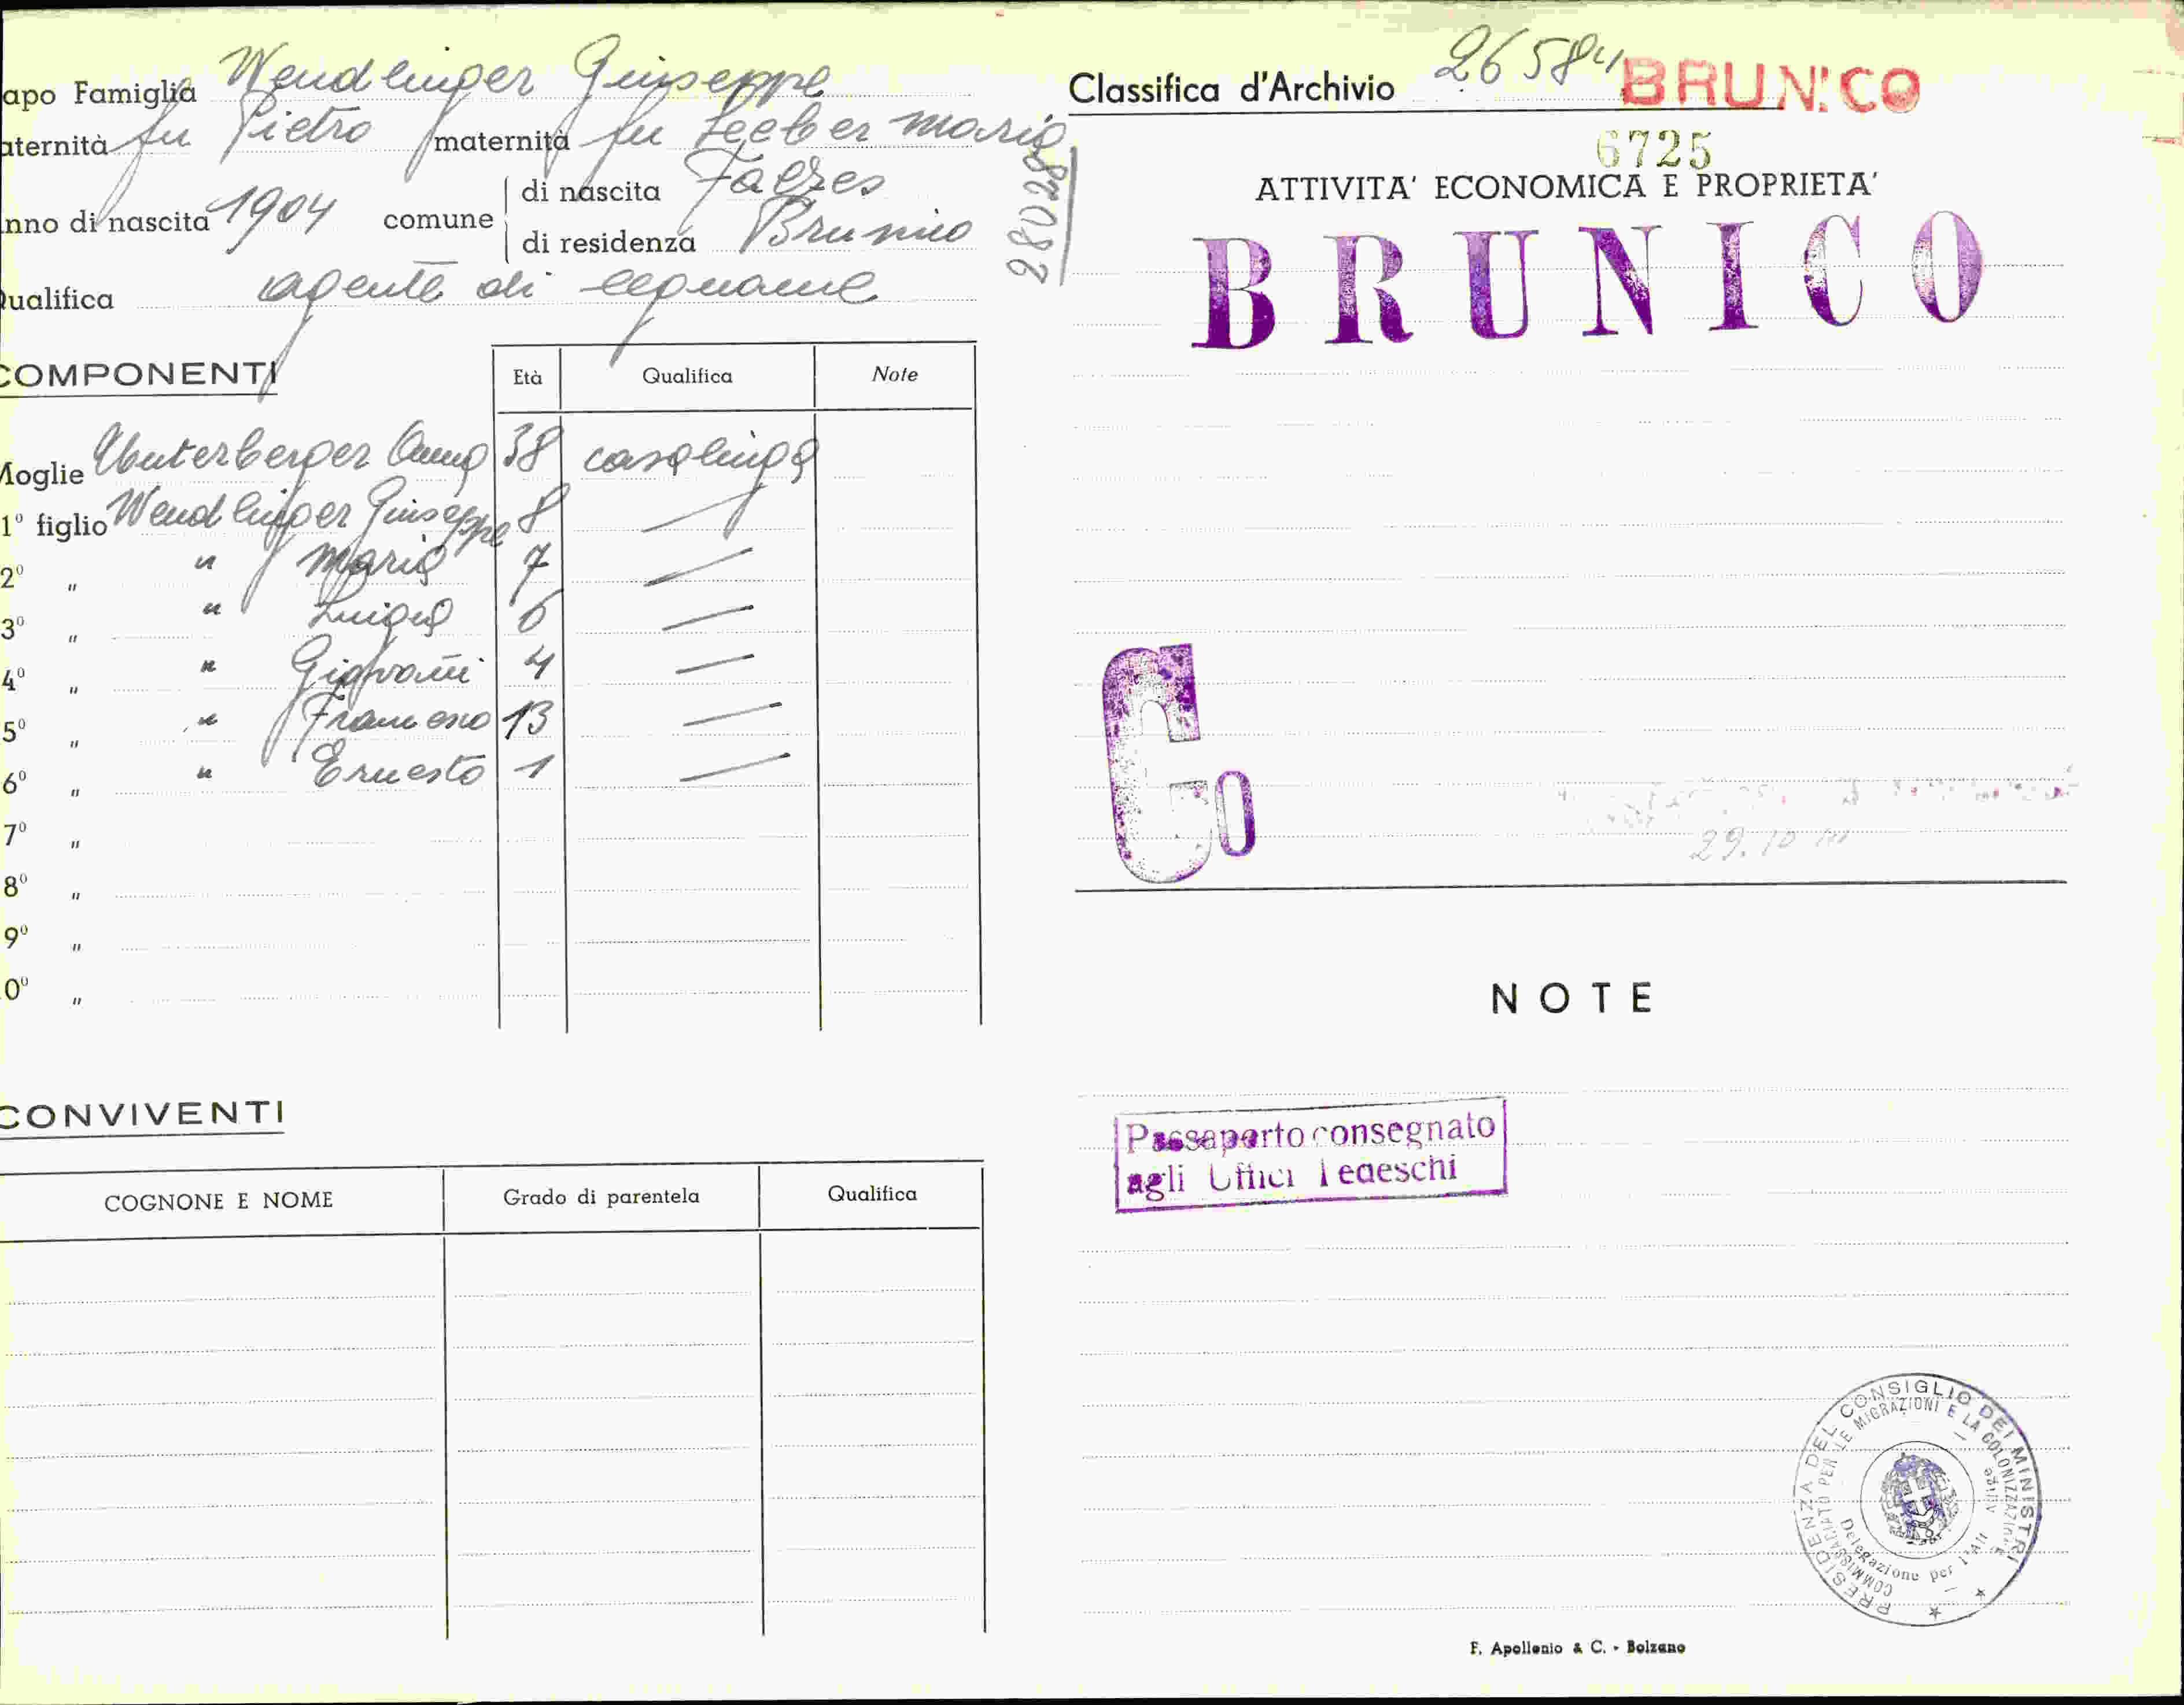 apo Famiglia Wendlinger Giuseppe
aternità fu Pietro maternità fu Seeber Maria
nno di nascita 1904 comune di nascita
di residenza Brunico
ualifica agente di legname
28028
COMPONENTI Età Qualifica Note
Moglie Unterberger Anna 38 casalinga
1° figlio Wendlinger Giuseppe 8 —
2° " " Maria 7 —
3° " " Luigia 6 —
4° " " Giovanni 4 —
5° " " Francesco 13 —
6° " " Ernesto 1 —
7° "
8° "
9° "
0° "
CONVIVENTI
COGNONE E NOME Grado di parentela Qualifica
Classifica d'Archivio 26584 BRUNICO
6725
ATTIVITA' ECONOMICA E PROPRIETA'
BRUNICO
Co
29.10
NOTE
Passaporto consegnato
agli Uffici Tedeschi
PRESIDENZA DEL CONSIGLIO DEI MINISTRI
COMMISSARIATO PER LE MIGRAZIONI E LA COLONIZZAZIONE
Delegazione per l'Alto Adige
F. Apollonio & C. - Bolzano